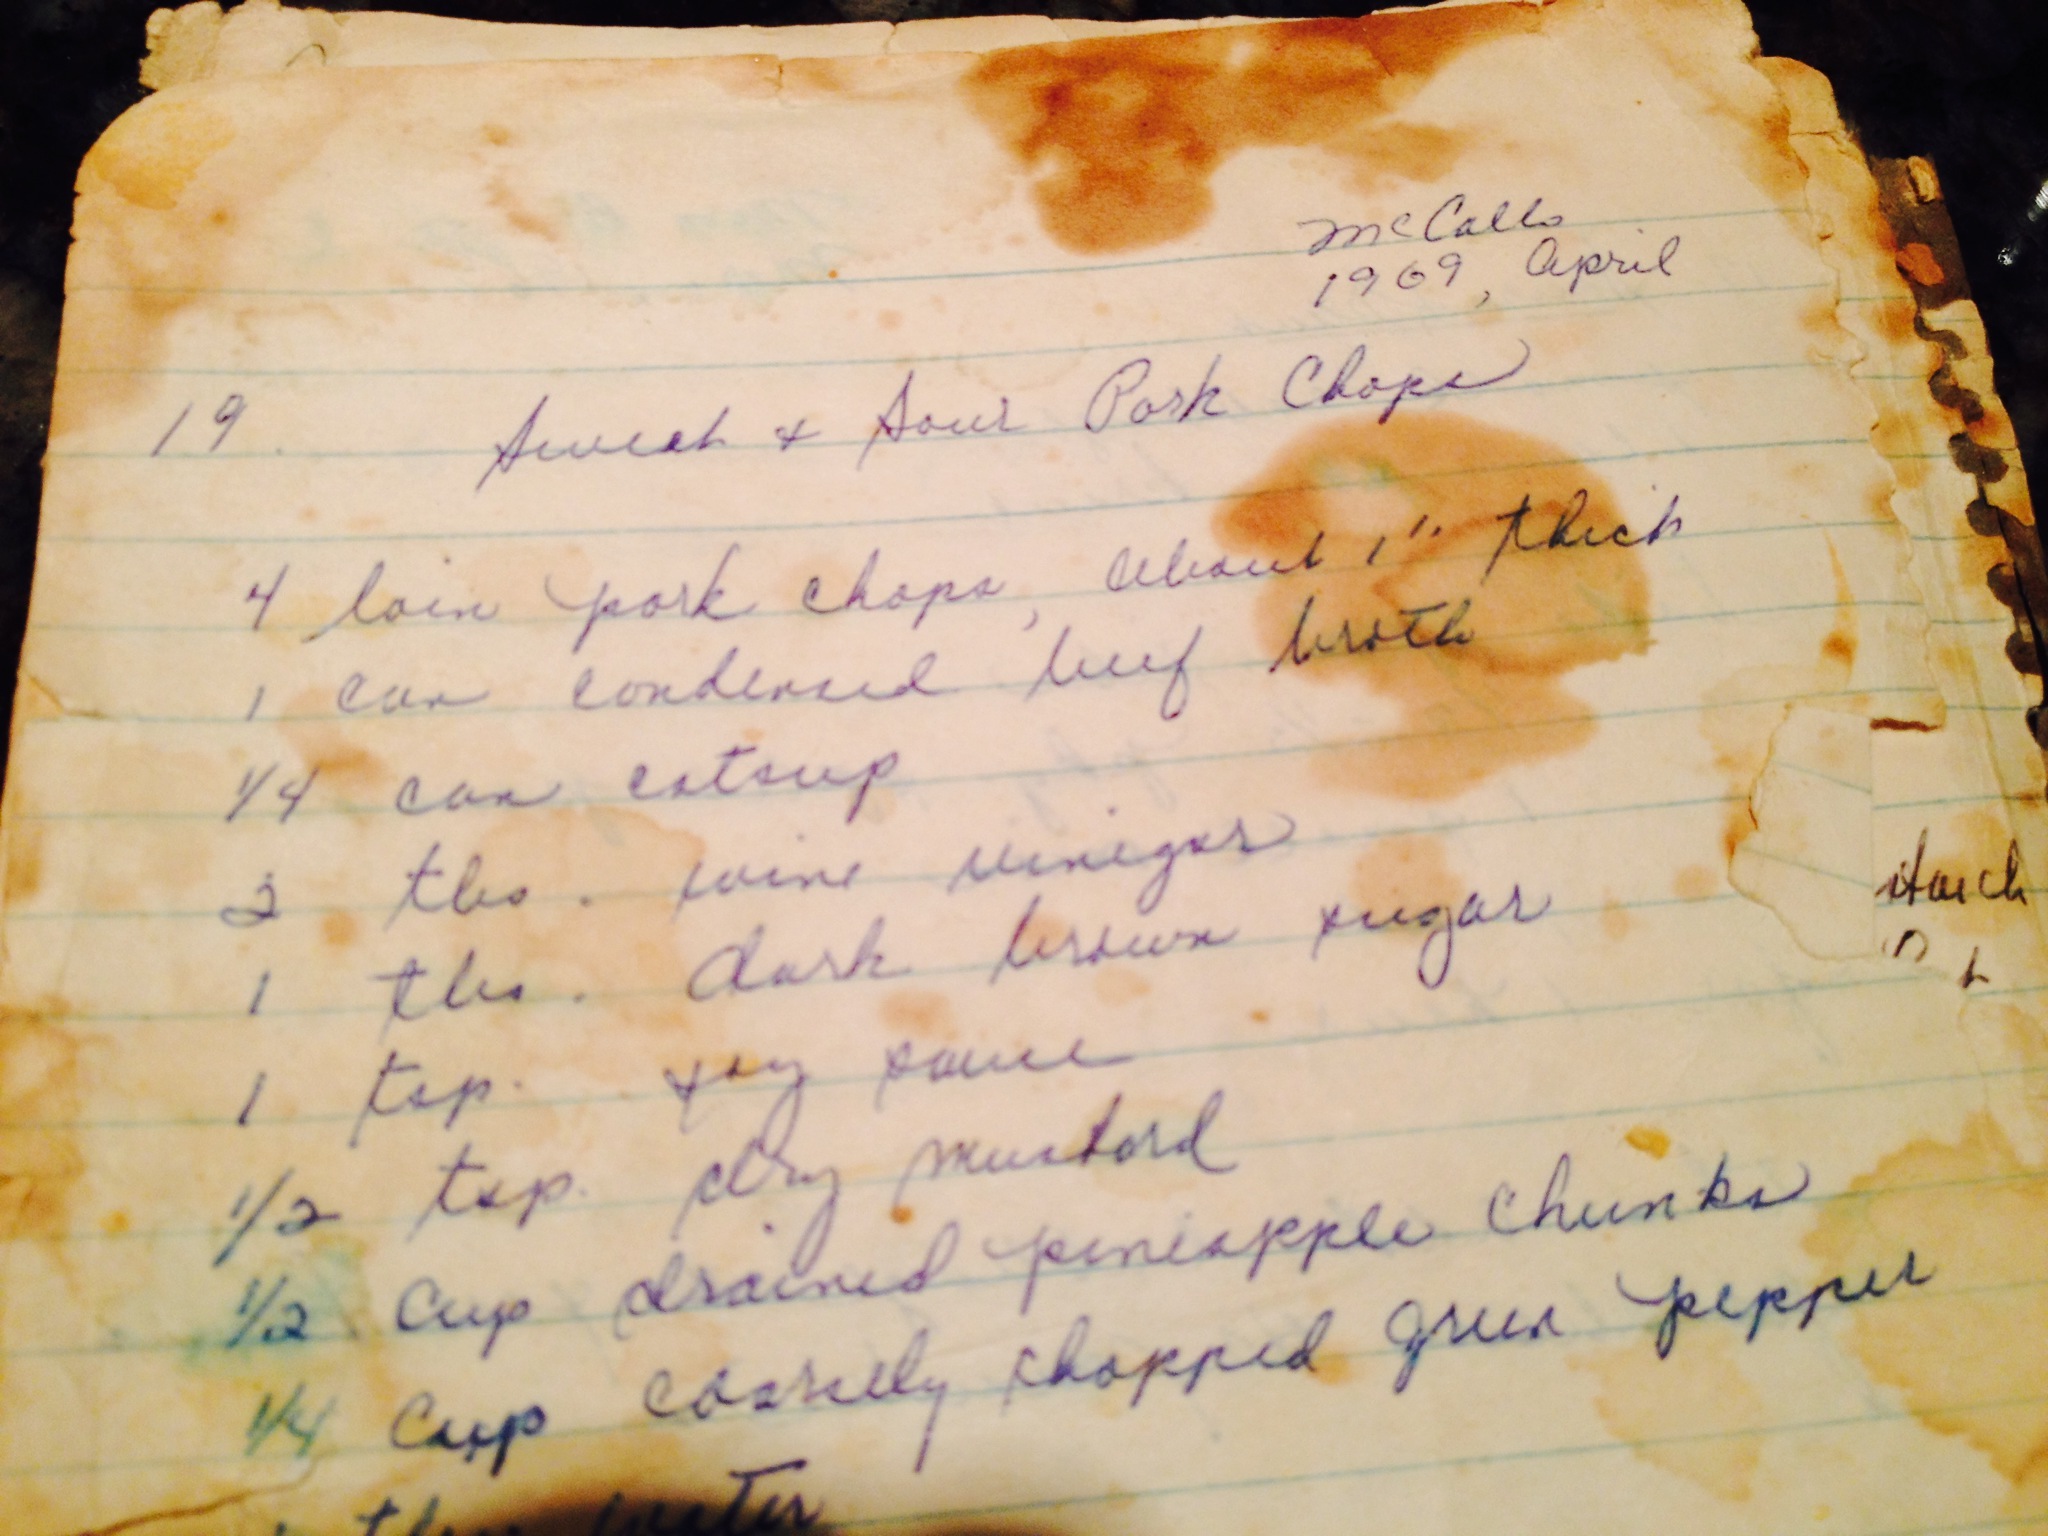 McCalls
1969, April
19. Sweet & Sour Pork Chops
4 loin pork chops, about 1" thick
1 can condensed beef broth
1/4 can catsup
2 tbs. wine vinegar
1 tbs. dark brown sugar
1 tsp. soy sauce
1/2 tsp. dry mustard
1/2 cup drained pineapple chunks
1/4 cup coarsely chopped green pepper
tbs water
starch